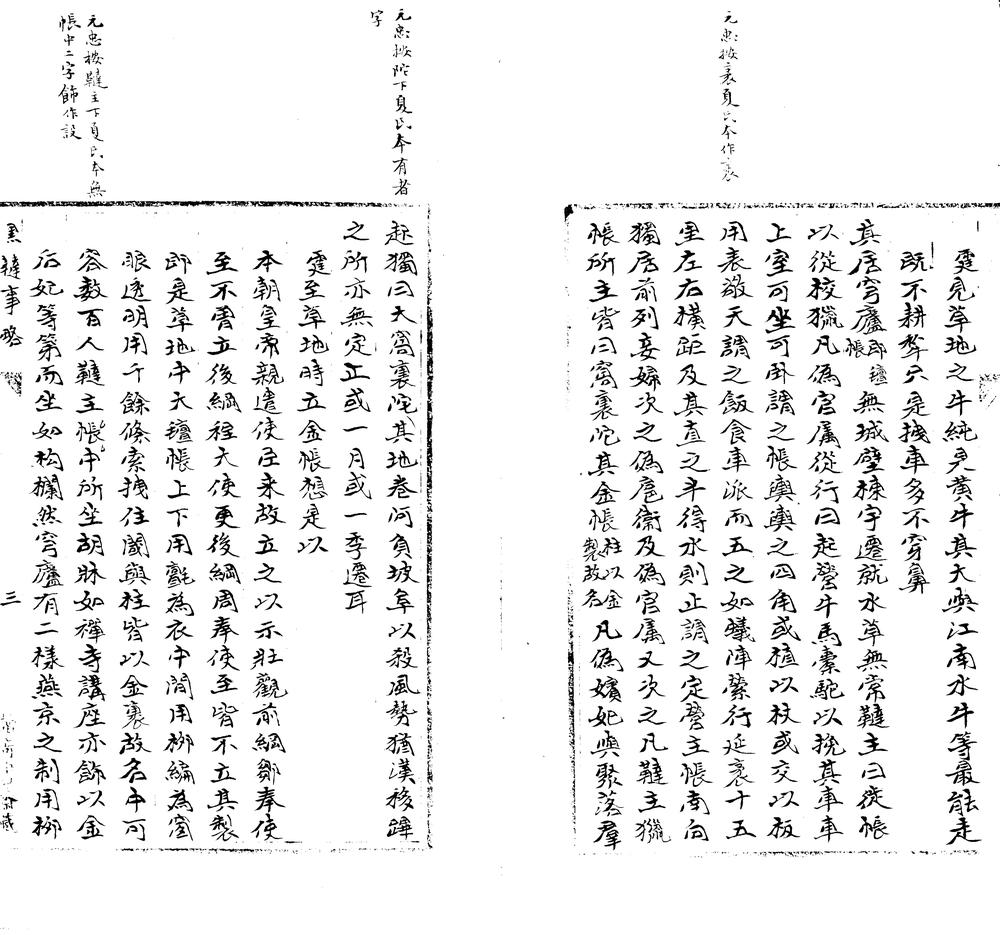 元忠按袤夏氏本作裹
霆見草地之牛純是黃牛其大與江南水牛等最能走
既不耕犂只是拽車多不穿鼻
其居穹廬即氊帳無城壁棟宇遷就水草無常韃主日徙帳
以從校獵凡偽官屬從行曰起營牛馬橐駝以挽其車車
上室可坐可臥謂之帳輿輿之四角或植以杖或交以板
用表敬天謂之飯食車派而五之如蟻陣縈行延袤十五
里左右橫距及其直之半得水則止謂之定營主帳南向
獨居前列妾婦次之偽扈衞及偽官屬又次之凡韃主獵
帳所主皆曰窩裏陀其金帳柱以金製故名凡偽嬪妃與聚落羣
元忠按陀下夏氏本有者
字
起獨曰大窩裏陀其地卷阿負坡阜以殺風勢猶漢移蹕
之所亦無定止或一月或一季遷耳
霆至草地時立金帳想是以
本朝皇帝親遣使臣來故立之以示壯觀前綱鄒奉使
至不曽立後綱程大使更後綱周奉使至皆不立其製
即是草地中大氊帳上下用氈為衣中間用栁編為窗
眼透明用千餘條索拽住閾與柱皆以金裹故名中可
容數百人韃主帳中所坐胡牀如禪寺講座亦飾以金
后妃等第而坐如构欄然穹廬有二樣燕京之制用栁
元忠按韃主下夏氏本無
帳中二字飾作設
黑韃事略
三